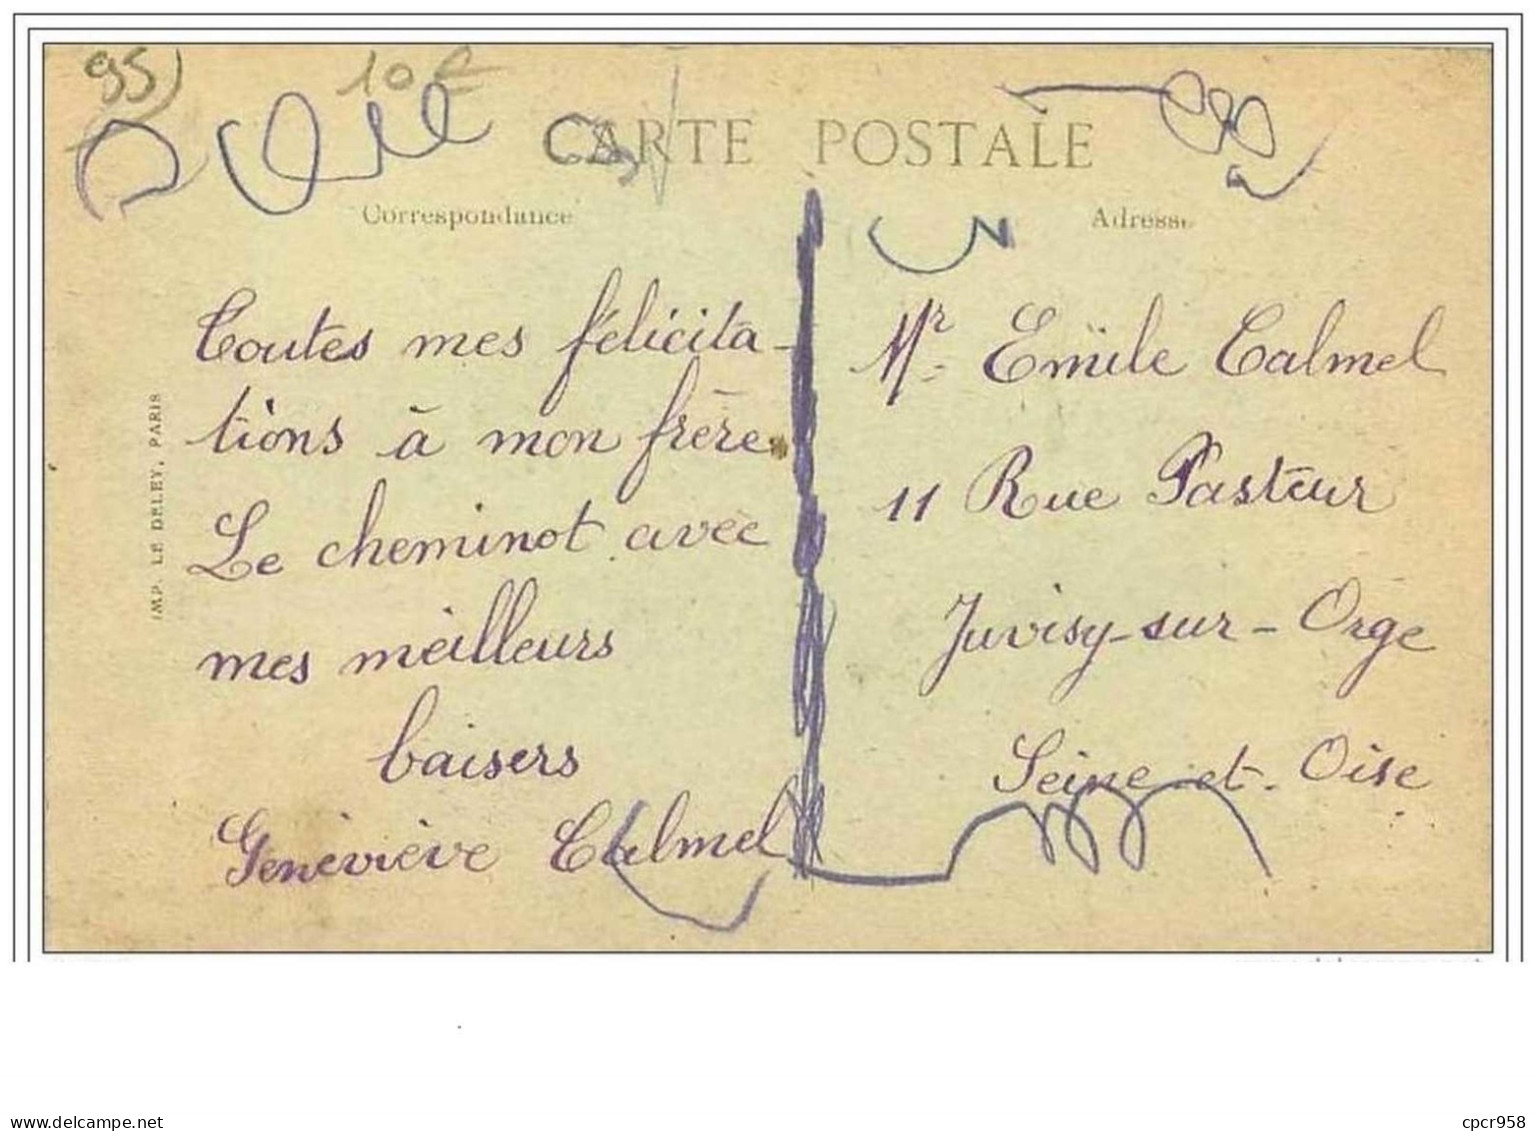 95)
10 €
CARTE POSTALE
Correspondance
Adresse
Toutes mes félicita-
tions à mon frère.
Le cheminot avec
mes meilleurs
baisers
Geneviève Calmel
Mr Emile Calmel
11 Rue Pasteur
Juvisy-sur-Orge
Seine-et-Oise
IMP. LE DELEY, PARIS
www.delcampe.net
cpcr958